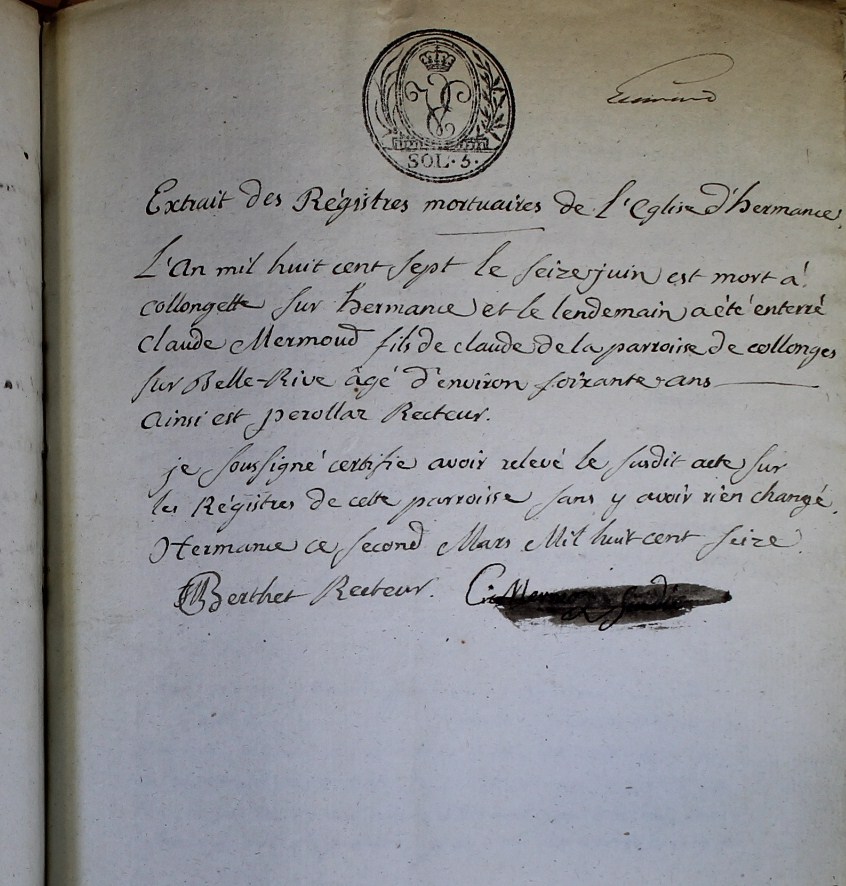 SOL. 5.
Extrait des Régistres mortuaires de l'Eglise d'hermance.
L'An mil huit cent sept le seize juin est mort á
collongette sur hermance et le lendemain a été enterré
Claude Mermoud fils de claude de la parroise de collonges
sur Belle-Rive âgé d'environ soixante ans
Ainsi est perollaz Recteur.
je soussigné certifie avoir relevé le susdit acte sur
les Régistres de cette parroisse sans y avoir rien changé.
Hermance ce second Mars Mil huit cent seize.
Berthet Recteur.